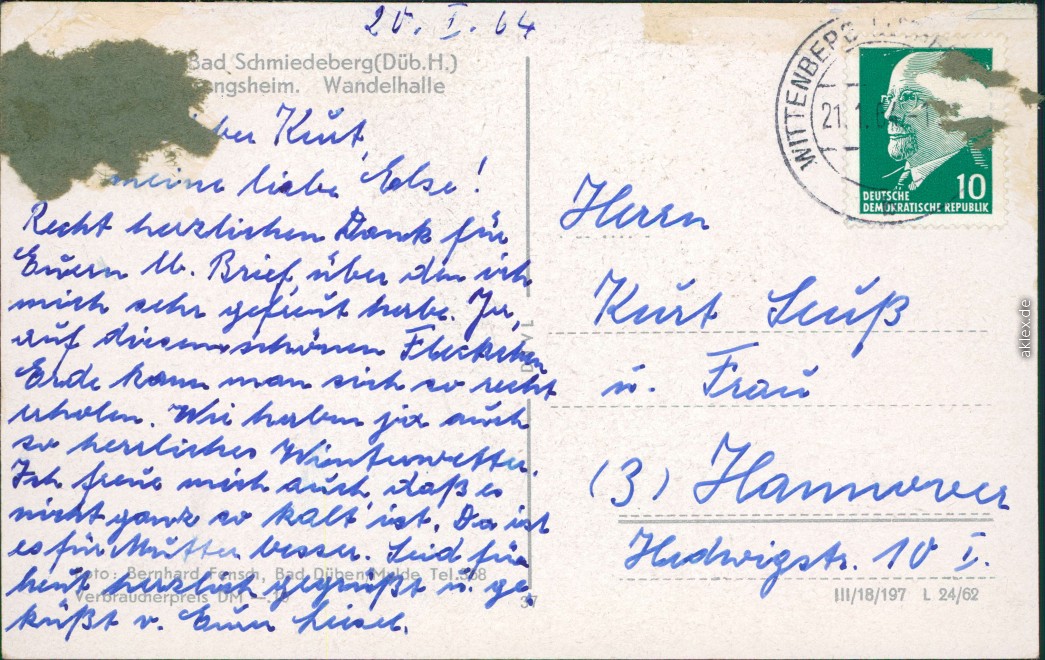 20. I. 64
Bad Schmiedeberg(Düb.H.)
ngsheim. Wandelhalle
Kurt,
meine liebe Else!
Recht herzlichen Dank für
Euern lb. Brief, über den ich
mich sehr gefreut habe. Ja,
auf diesem schönen Fleckchen
Erde kann man sich so recht
erholen. Wir haben ja auch
so herrliches Winterwetter.
Ich freue mich auch, daß es
nicht ganz so kalt ist. Da ist
es für Mutter besser. Seid für
heut herzlich gegrüßt u. ge-
küßt v. Eurer Liesel.
oto: Bernhard Fensch, Bad Düben/Mulde Tel.
Verbraucherpreis DM
37
WITTENBERG
21. 1. 6
DEUTSCHE
DEMOKRATISCHE REPUBLIK
10
Herrn
Kurt Seuß
u. Frau
(3) Hannover
Hedwigstr. 10 I.
III/18/197 L 24/62
aklex.de